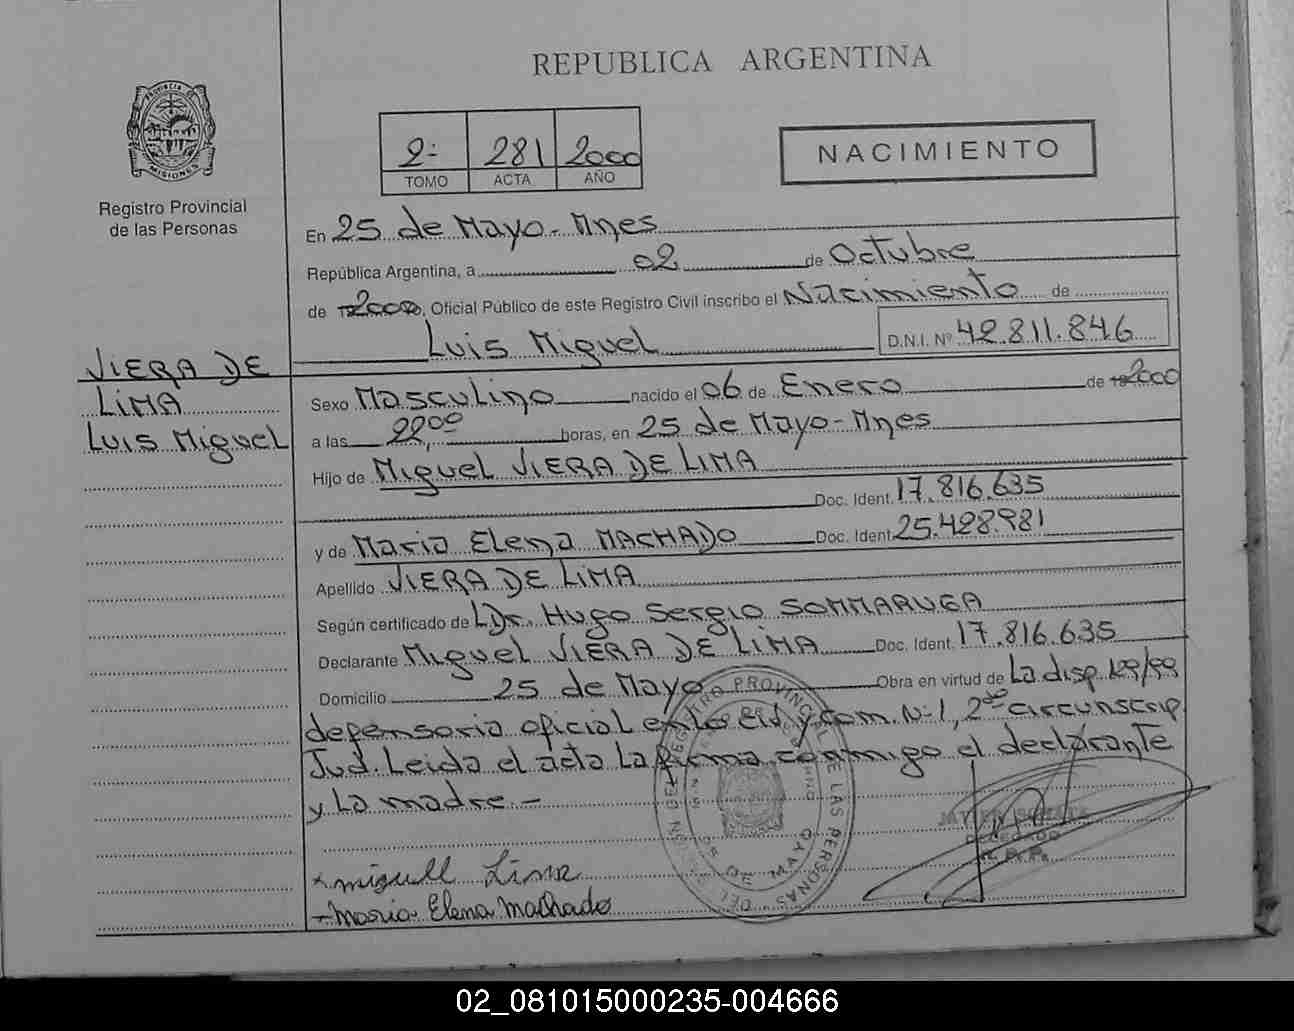 REPUBLICA ARGENTINA
PROVINCIA DE MISIONES
Registro Provincial
de las Personas
2- 281 2000
TOMO ACTA AÑO
NACIMIENTO
En 25 de Mayo - Mnes
República Argentina, a 02 de Octubre
de 2000, Oficial Público de este Registro Civil inscribo el Nacimiento de
Luis Miguel D.N.I. Nº 42.811.846
VIERA DE
LIMA
Luis Miguel
Sexo Masculino nacido el 06 de Enero de 2000
a las 22,00 horas, en 25 de Mayo - Mnes
Hijo de Miguel VIERA DE LIMA
Doc. Ident. 17.816.635
y de Maria Elena MACHADO Doc. Ident. 25.428981
Apellido VIERA DE LIMA
Según certificado de Dr. Hugo Sergio SOMMARUGA
Declarante Miguel VIERA DE LIMA Doc. Ident. 17.816.635
Domicilio 25 de Mayo Obra en virtud de La disp.
defensoria oficial en lo Civ. y com. N-1, 2da circunscrip
Jud. Leida el acta La firma conmigo el declarante
y La madre.-
DE LAS PERSONAS
25 DE MAYO
miguell Lima
Maria Elena Machado
02_081015000235-004666